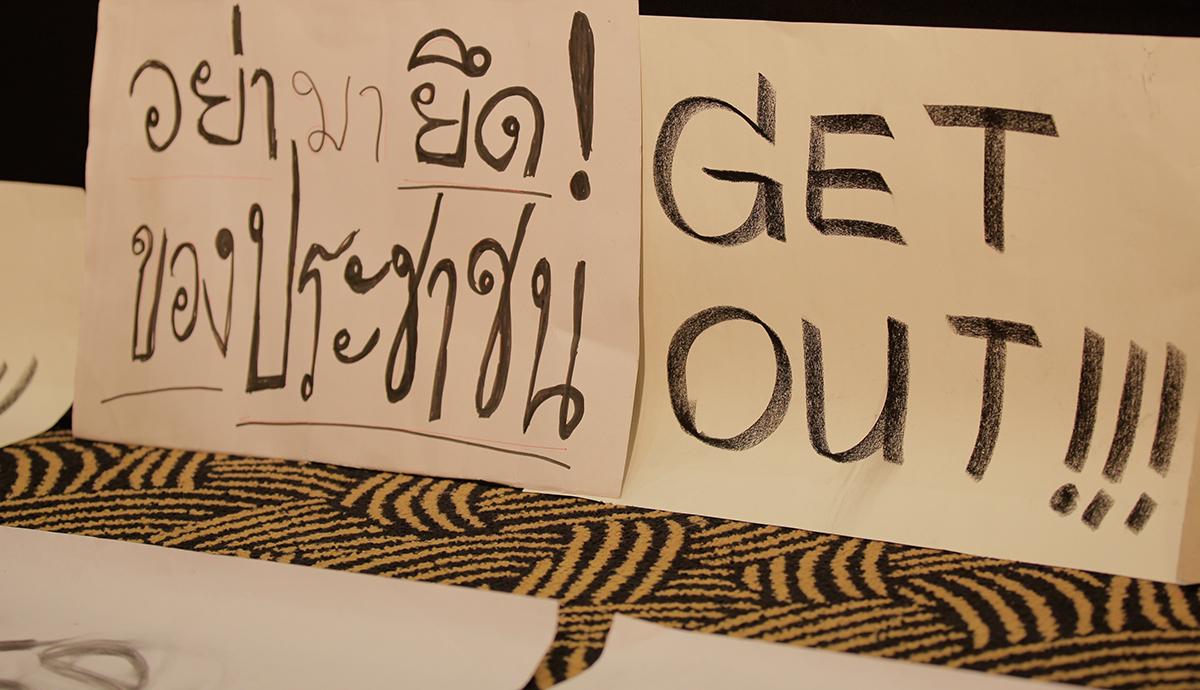 อย่ามายึด!
ของประชาชน
GET
OUT!!!